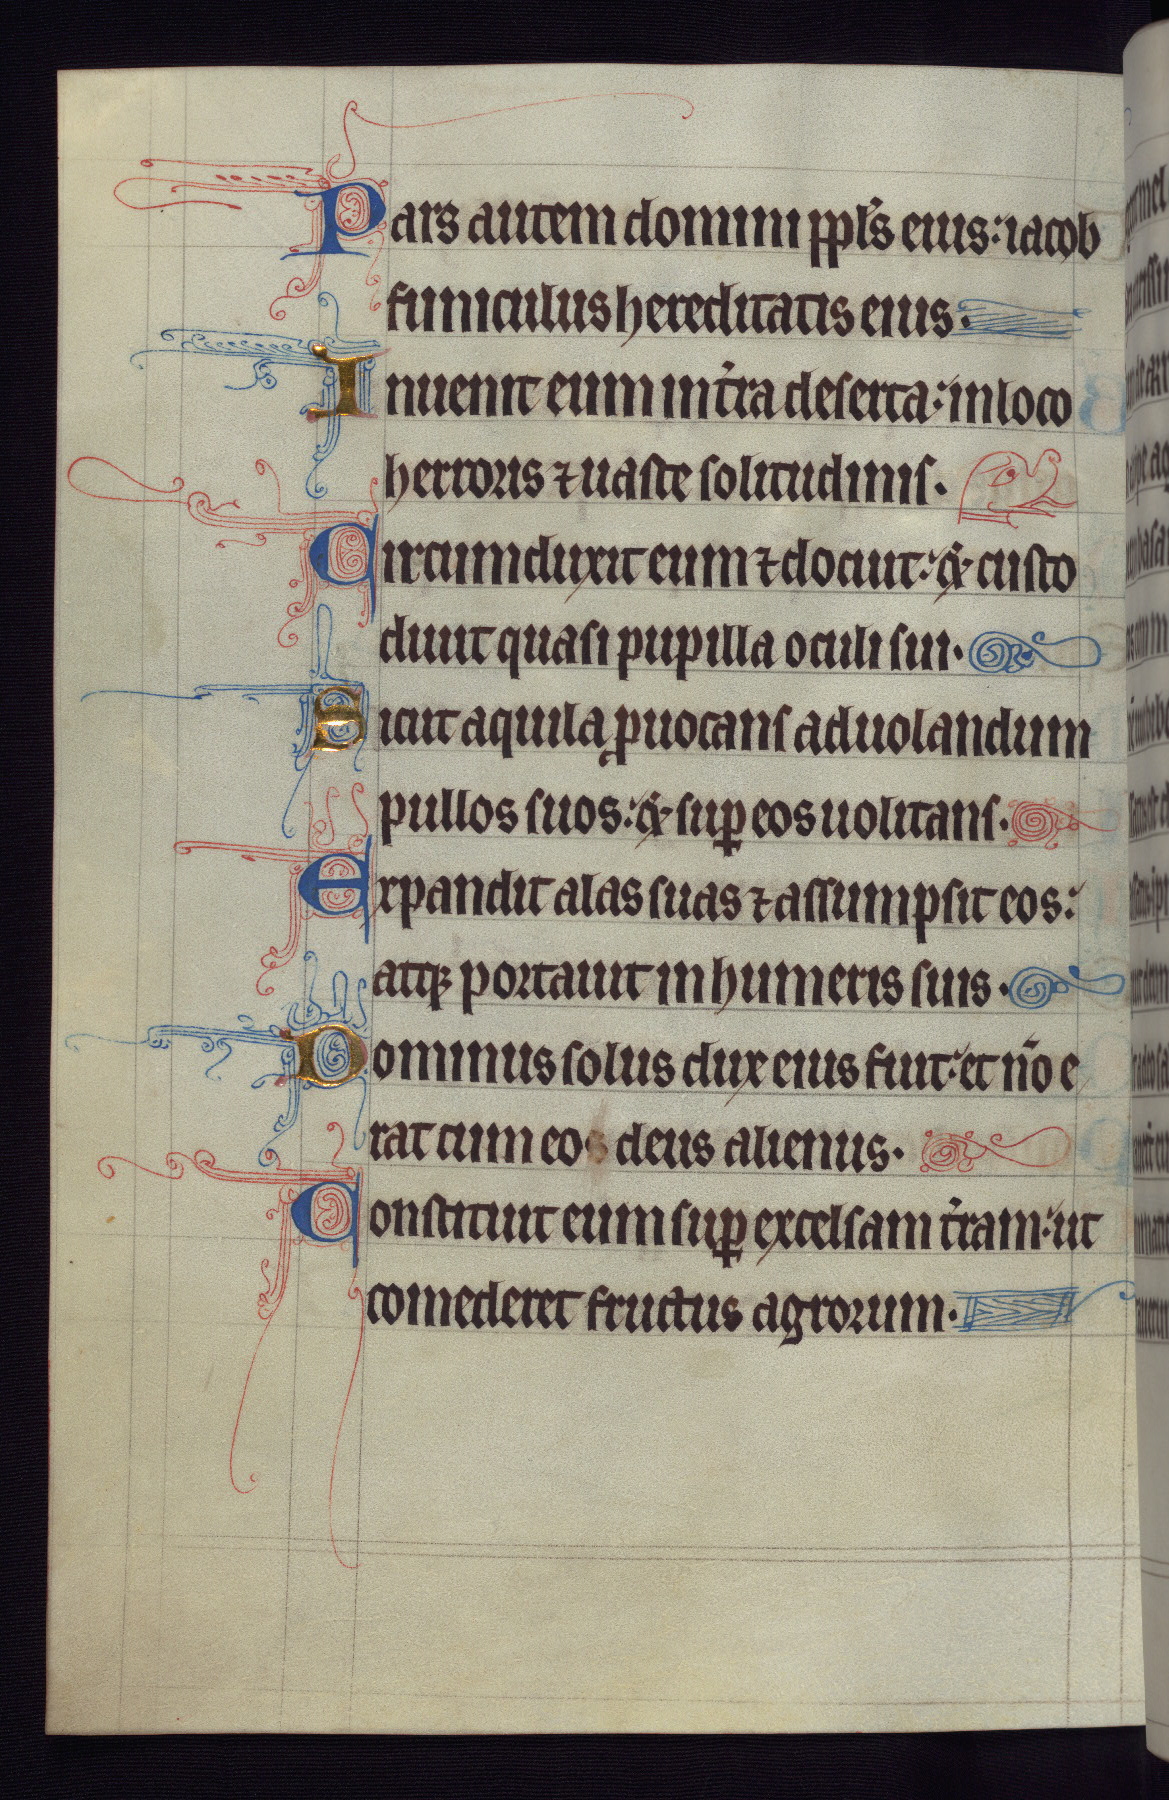 Pars autem domini ppl's eius: iacob
funiculus hereditatis eius.
Inuenit eum in t'ra deserta: in loco
herroris ⁊ uaste solitudinis.
Circumduxit eum ⁊ docuit: & custo
diuit quasi pupilla oculi sui.
Sicut aquila ꝓuocans ad uolandum
pullos suos: & suꝑ eos uolitans.
Expandit alas suas ⁊ assumpsit eos:
atqꝫ portauit in humeris suis.
Dominus solus dux eius fuit: et no̅ e
rat cum eo deus alienus.
Constituit eum suꝑ excelsam t'ram: ut
comederet fructus agrorum.